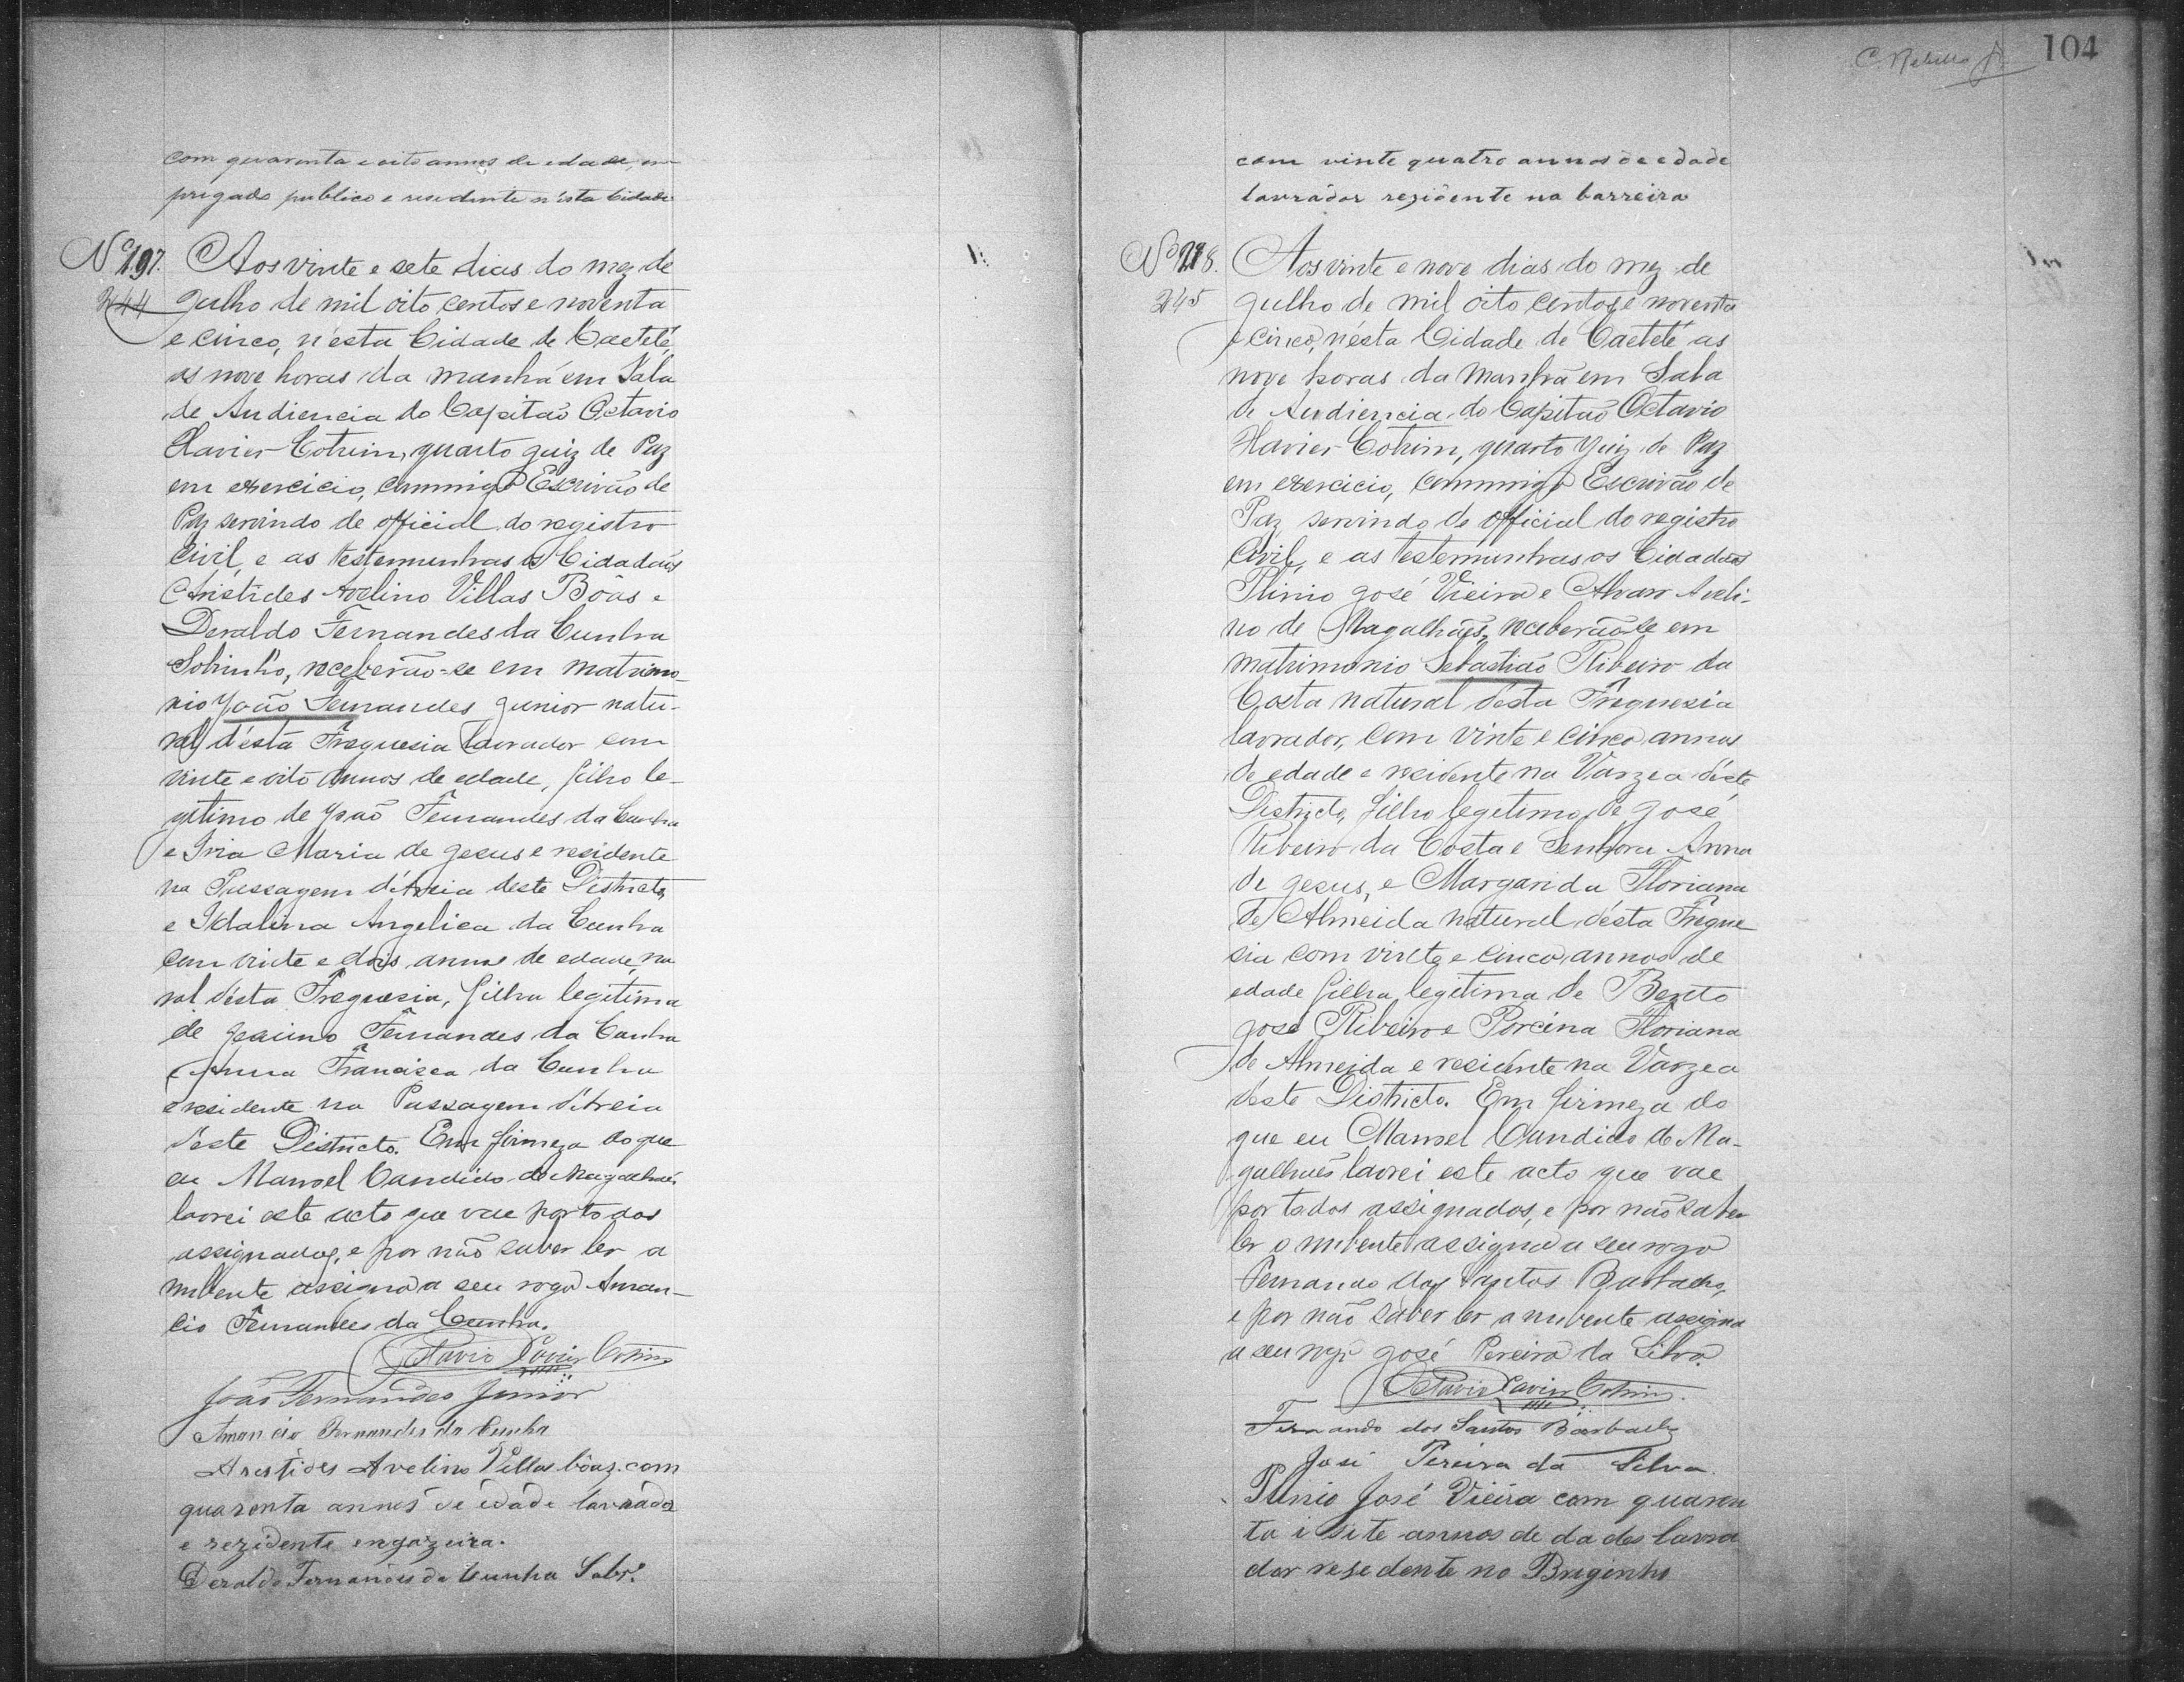 com quarenta e oito annos de edade, em
pregado publico e residente n'esta Cidade
Nº 197.
244
Aos vinte e sete dias do mez de
Julho de mil oito centos e noventa
e cinco, n'esta Cidade de Caetité,
as nove horas da manhã em Sala
de Audiencia do Capitão Octavio
Xavier Cotrim, quarto Juiz de Paz
em exercicio, commigo Escrivão de
Paz servindo de official do registro
civil, e as testemunhas os Cidadãos
Aristides Avelino Villas Bôas e
Deraldo Fernandes da Cunha
Sobrinho, receberão-se em matrimo-
nio João Fernandes Junior natu-
ral d'esta Freguesia lavrador com
vinte e oito annos de edade, filho le-
gitimo de João Fernandes da Cunha
e Iria Maria de Jesus e residente
na Passagem d'Areia deste Districto,
e Idalina Angelica da Cunha
com vinte e dois annos de edade, na
ral d'esta Freguesia, filha legitima
de Fernandes da Cunha
e Anna Francisca da Cunha
e residente na Passagem d'Areia
d'este Districto. Em firmeza do que
eu Manoel Candido de Magalhães
lavrei este acto que vae por todos
assignados, e por não saber ler a
nubente assigna a seu rogo Aman-
cio Fernandes da Cunha.
Octavio Xavier Cotrim
João Fernandes Junior
Amancio Fernandes da Cunha
Arestides Avelino Villas bôaz. com
quarenta annos de idade lavrador
e rezidente
Deraldo Fernandes da Cunha Sobr.º
C. Rebello Jr
104
com vinte quatro annos de edade
lavrador rezidente na barreira
Nº 218.
245
Aos vinte e nove dias do mez de
Julho de mil oito centos e noventa
e cinco, n'esta Cidade de Caetité as
nove horas da manhã em Sala
de Audiencia do Capitão Octavio
Xavier Cotrim, quarto Juiz de Paz
em exercicio, commigo Escrivão de
Paz servindo de official do registro
Civil, e as testemunhas os Cidadãos
Plinio José Vieira e Alvaro Aveli-
no de Magalhães, receberão-se em
matrimonio Sebastião Ribeiro da
Costa natural d'esta Freguesia
lavrador, com vinte e cinco annos
de edade e residente na Varzea d'este
Districto, filho legitimo de José
Ribeiro da Costa e Senhora Anna
de Jesus, e Margarida Floriana
de Almeida natural d'esta Fregue
sia com vinte e cinco annos de
edade filha legitima de Bento
José Ribeiro e Porcina Floriana
de Almeida e residente na Varzea
d'este Districto. Em firmeza do
que eu Manoel Candido de Ma-
galhães lavrei este acto que vae
por todos assignados, e por não saber
ler o nubente assigna a seu rogo
Fernando dos Santos Barbalho,
e por não saber ler a nubente assigna
a seu rogo José Pereira da Silva.
Octavio Xavier Cotrim.
Fernando dos Santos Barbalho
José Pereira da Silva.
Plinio José Vieira com quaren
ta i site annos de da des lavra
dor resedente no Breginho